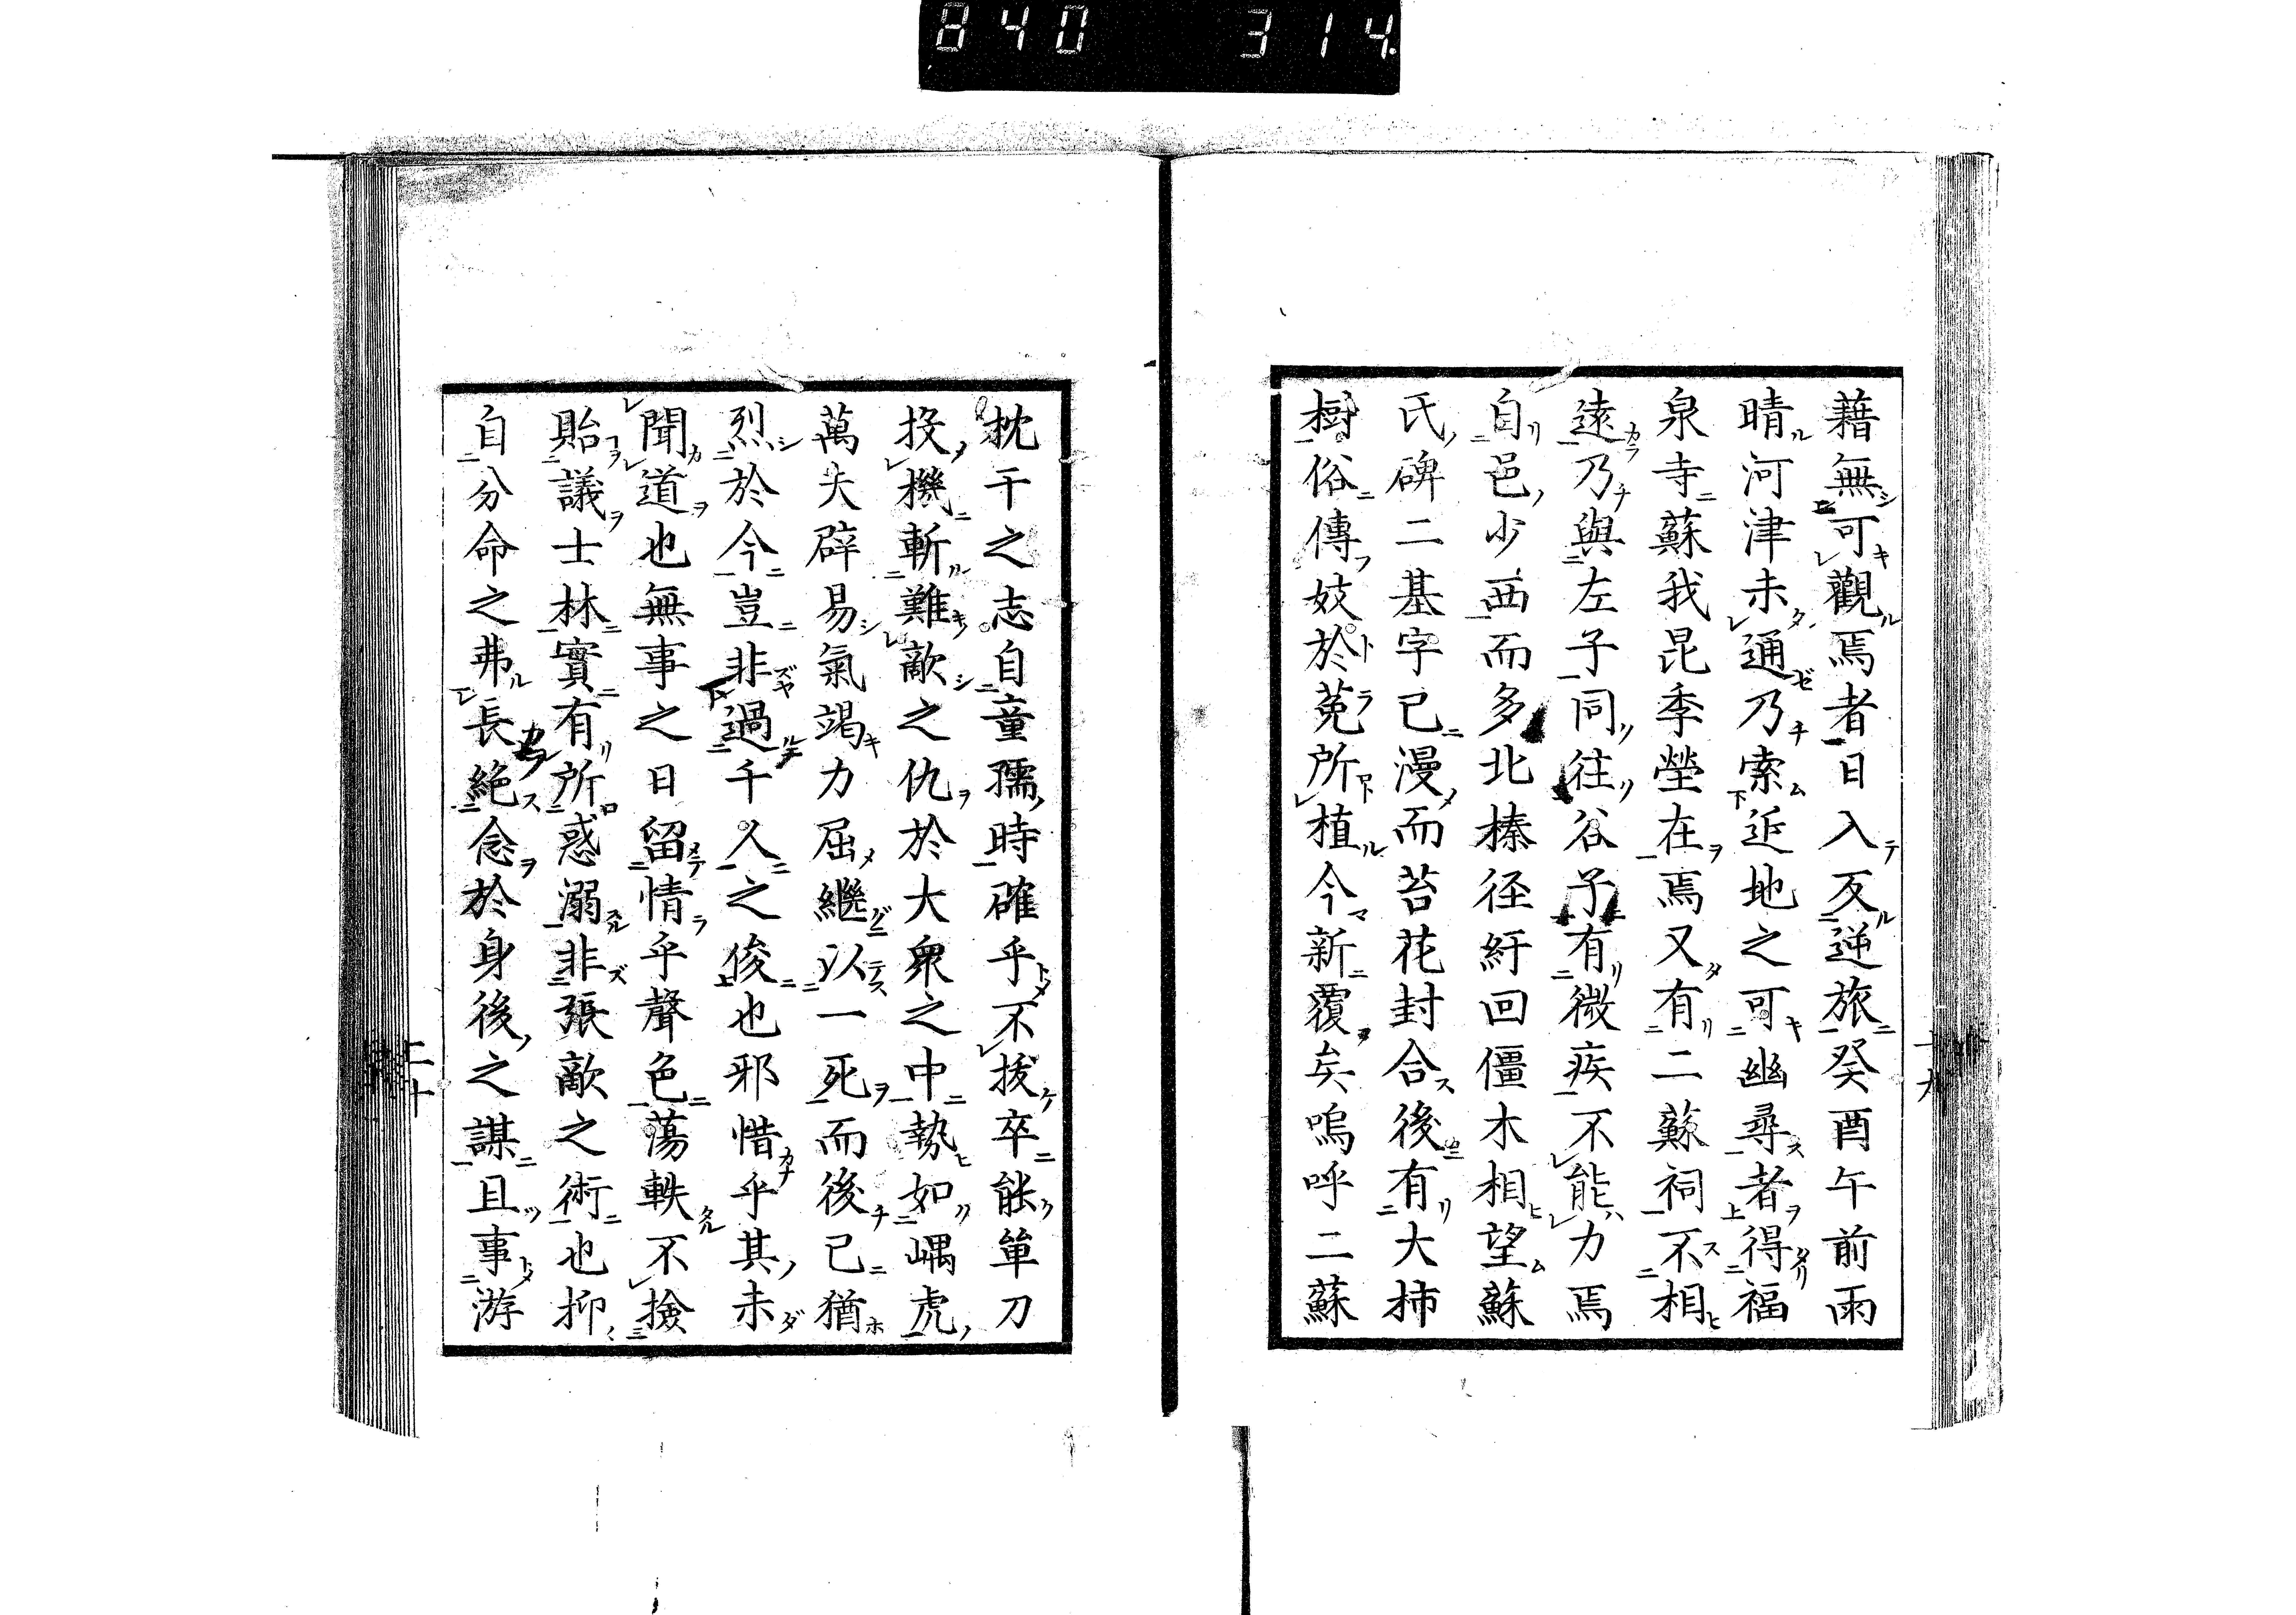 840 314
藉無可觀焉者日入反逆旅癸酉午前雨
晴河津未通乃索近地之可幽尋者得福
泉寺蘇我昆季塋在焉又有二蘇祠不相
遠乃與左子同往谷予有微疾不能力焉
自邑少西而多北榛徑紆回僵木相望蘇
氏碑二基字已漫而苔花封合後有大柿
樹俗傳妓於菟所植今新覆矣嗚呼二蘇
枕干之志自童孺時確乎不拔卒能單刀
投機斬難敵之仇於大衆之中勢如嵎虎
萬夫辟易氣竭力屈繼以一死而後已猶
烈於今豈非過千人之俊也邪惜乎其未
聞道也無事之日留情乎聲色蕩軼不撿
貽議士林實有所惑溺非張敵之術也抑
自分命之弗長絕念於身後之謀且事游
十九
二十